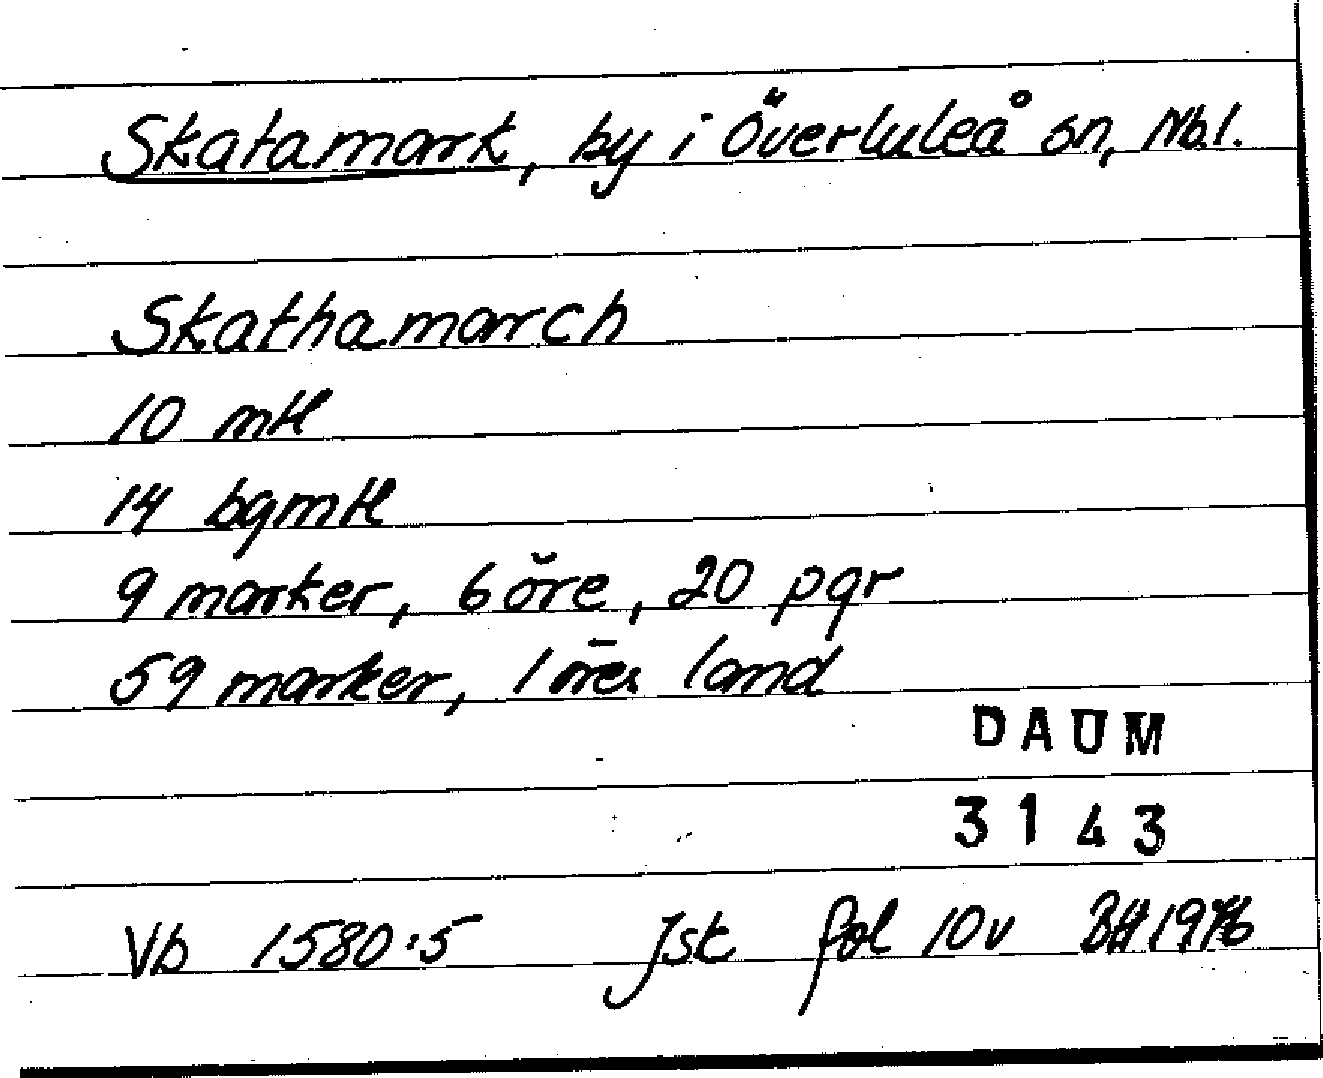 Skatamark, by i Överluleå sn, Nb.l.
Skathamarch
10 mtl
14 bgmtl
9 marker, 6 öre, 20 pgr
59 marker, 1 öres land
DAUM
3143
Vb 1580:5 Jst fol 10v BH 1976